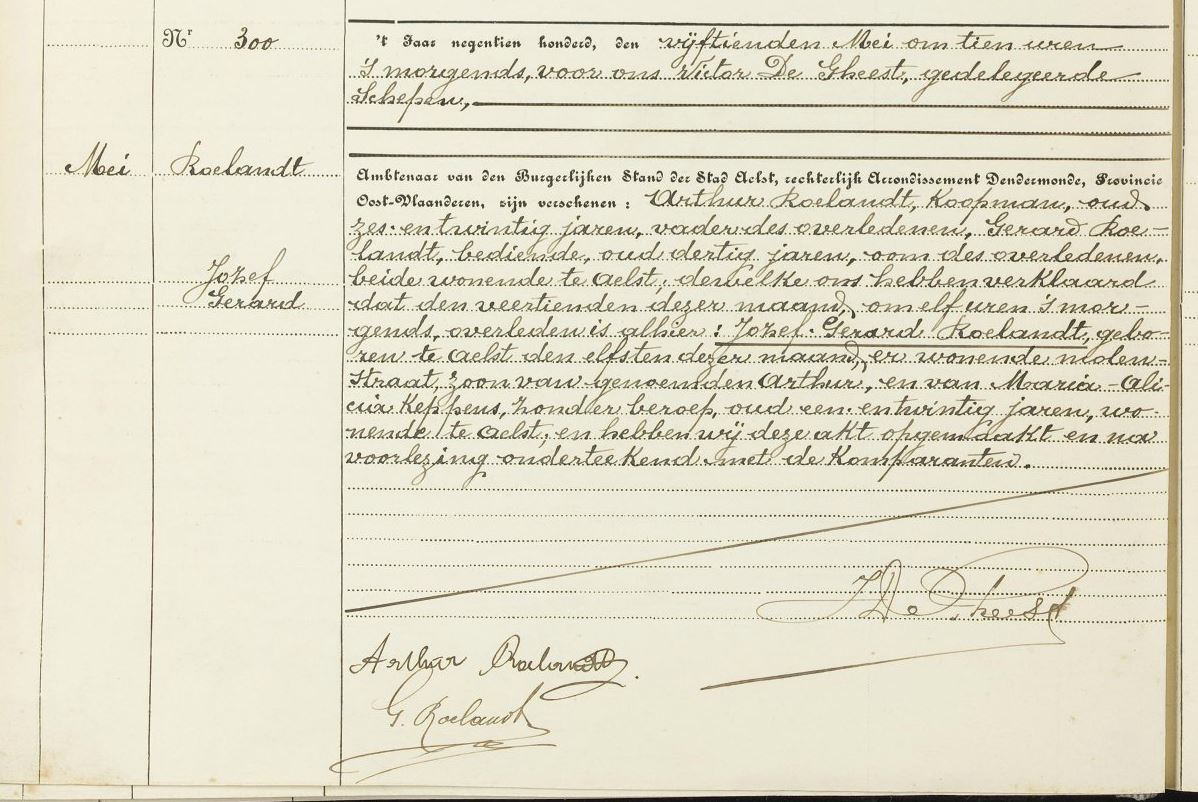 Nr 300
't Jaar negentien honderd, den vijftienden Mei om tien uren
's morgends, voor ons Victor De Gheest, gedelegeerde
Schepen,
Mei
Roelandt
Jozef
Gerard
Ambtenaar van den Burgerlijken Stand der Stad Aelst, rechterlijk Arrondissement Dendermonde, Provincie
Oost-Vlaanderen, zijn verschenen : Arthur Roelandt, Koopman, oud
zes-en twintig jaren, vader des overledenen, Gerard Roe-
landt, bediende, oud dertig jaren, oom des overledenen,
beide wonende te Aelst; dewelke ons hebben verklaard
dat den veertienden dezer maand, om elf uren 's mor-
gends, overleden is alhier : Jozef-Gerard Roelandt, gebo-
ren te Aelst den elfsten dezer maand, er wonende molen-
straat, zoon van genoemden Arthur, en van Maria-Ali-
cia Keppens, zonder beroep, oud een-en twintig jaren, wo-
nende te Aelst; en hebben wij deze akt opgemaakt en na
voorlezing onderteekend met de Komparanten.
V De Gheest
Arthur Roelandt
G. Roelandt